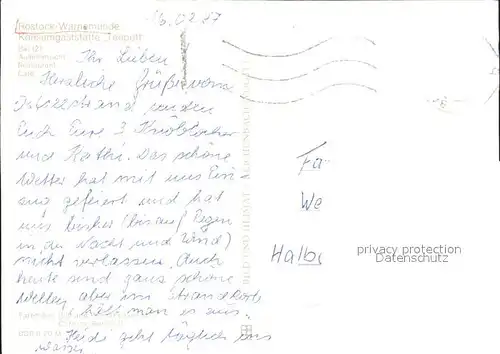 16.02.87
Rostock-Warnemünde
Konsumgaststätte „Teepott“
Café
Ihr Lieben
Herzliche Grüße vom
senden
Euch Eure 3
und Kathi. Das schöne
Wetter hat mit uns Ein-
zug gefeiert und hat
uns bisher (bis auf Regen
in der Nacht und Wind)
nicht verlassen. Auch
heute sind ganz schöne
Wellen aber im Strandkorb
hält man es aus.
Heidi geht täglich ins
Wasser
BILD UND HEIMAT REICHENBACH
Fa
We
Halbe
privacy protection
Datenschutz